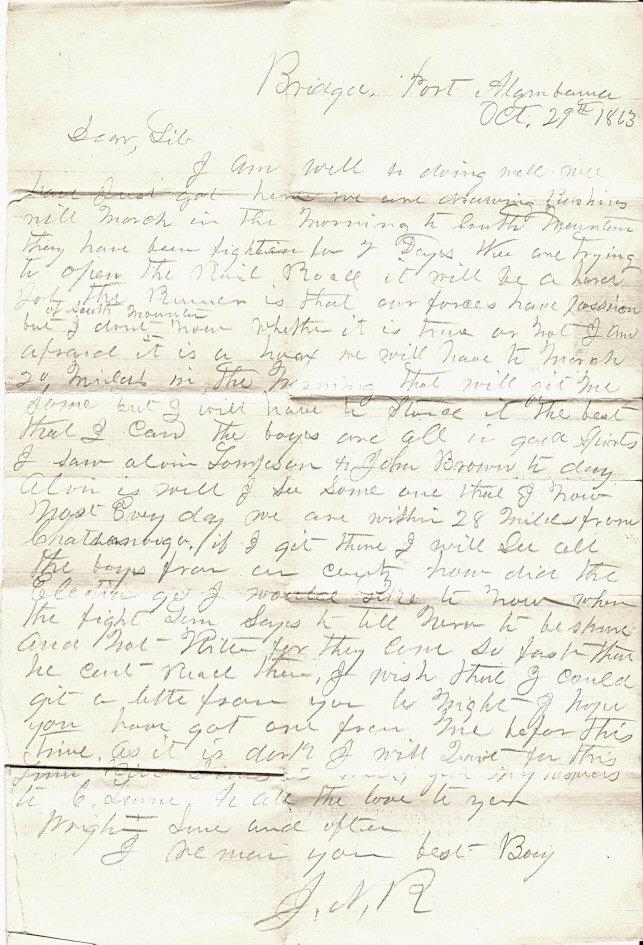 Bridge, Port Alambama
Oct. 29th 1863
Dear, Sib
I Am well & doing well we
have Just got here we are drawing Rashins
will March in the Morning to South Mountain
they have been fighten for 2 Days Wee are trying
to open the Rail Roade it will be a hard
Job, the Rumer is that our forces have possion
of South Mountain
but I dont Now whether it is true or Not I am
afraid it is a hoax we will have to March
20 Milds in the Morning that will git Me
some but I will have to Stand it the best
that I can the boys are all in good Spirts
I saw alvin Tompson & John Brown to day
Alvin is well I See Some one that I Now
Most Evry day we are within 28 Milds from
Chatanooga. if I git there I will See all
the boys from our county how did the
Election go I would like to Now when
the fight Sum Says to tell
And Not Rite for they Come So fast that
he cant Read them, I wish that I could
git a lette from you to Night I hope
you have got one from Me befor this
time as it is dark I will Quit for this
time
to C. & all the love to you
Wright Sune and often
I reman your best Boy
J. N. R